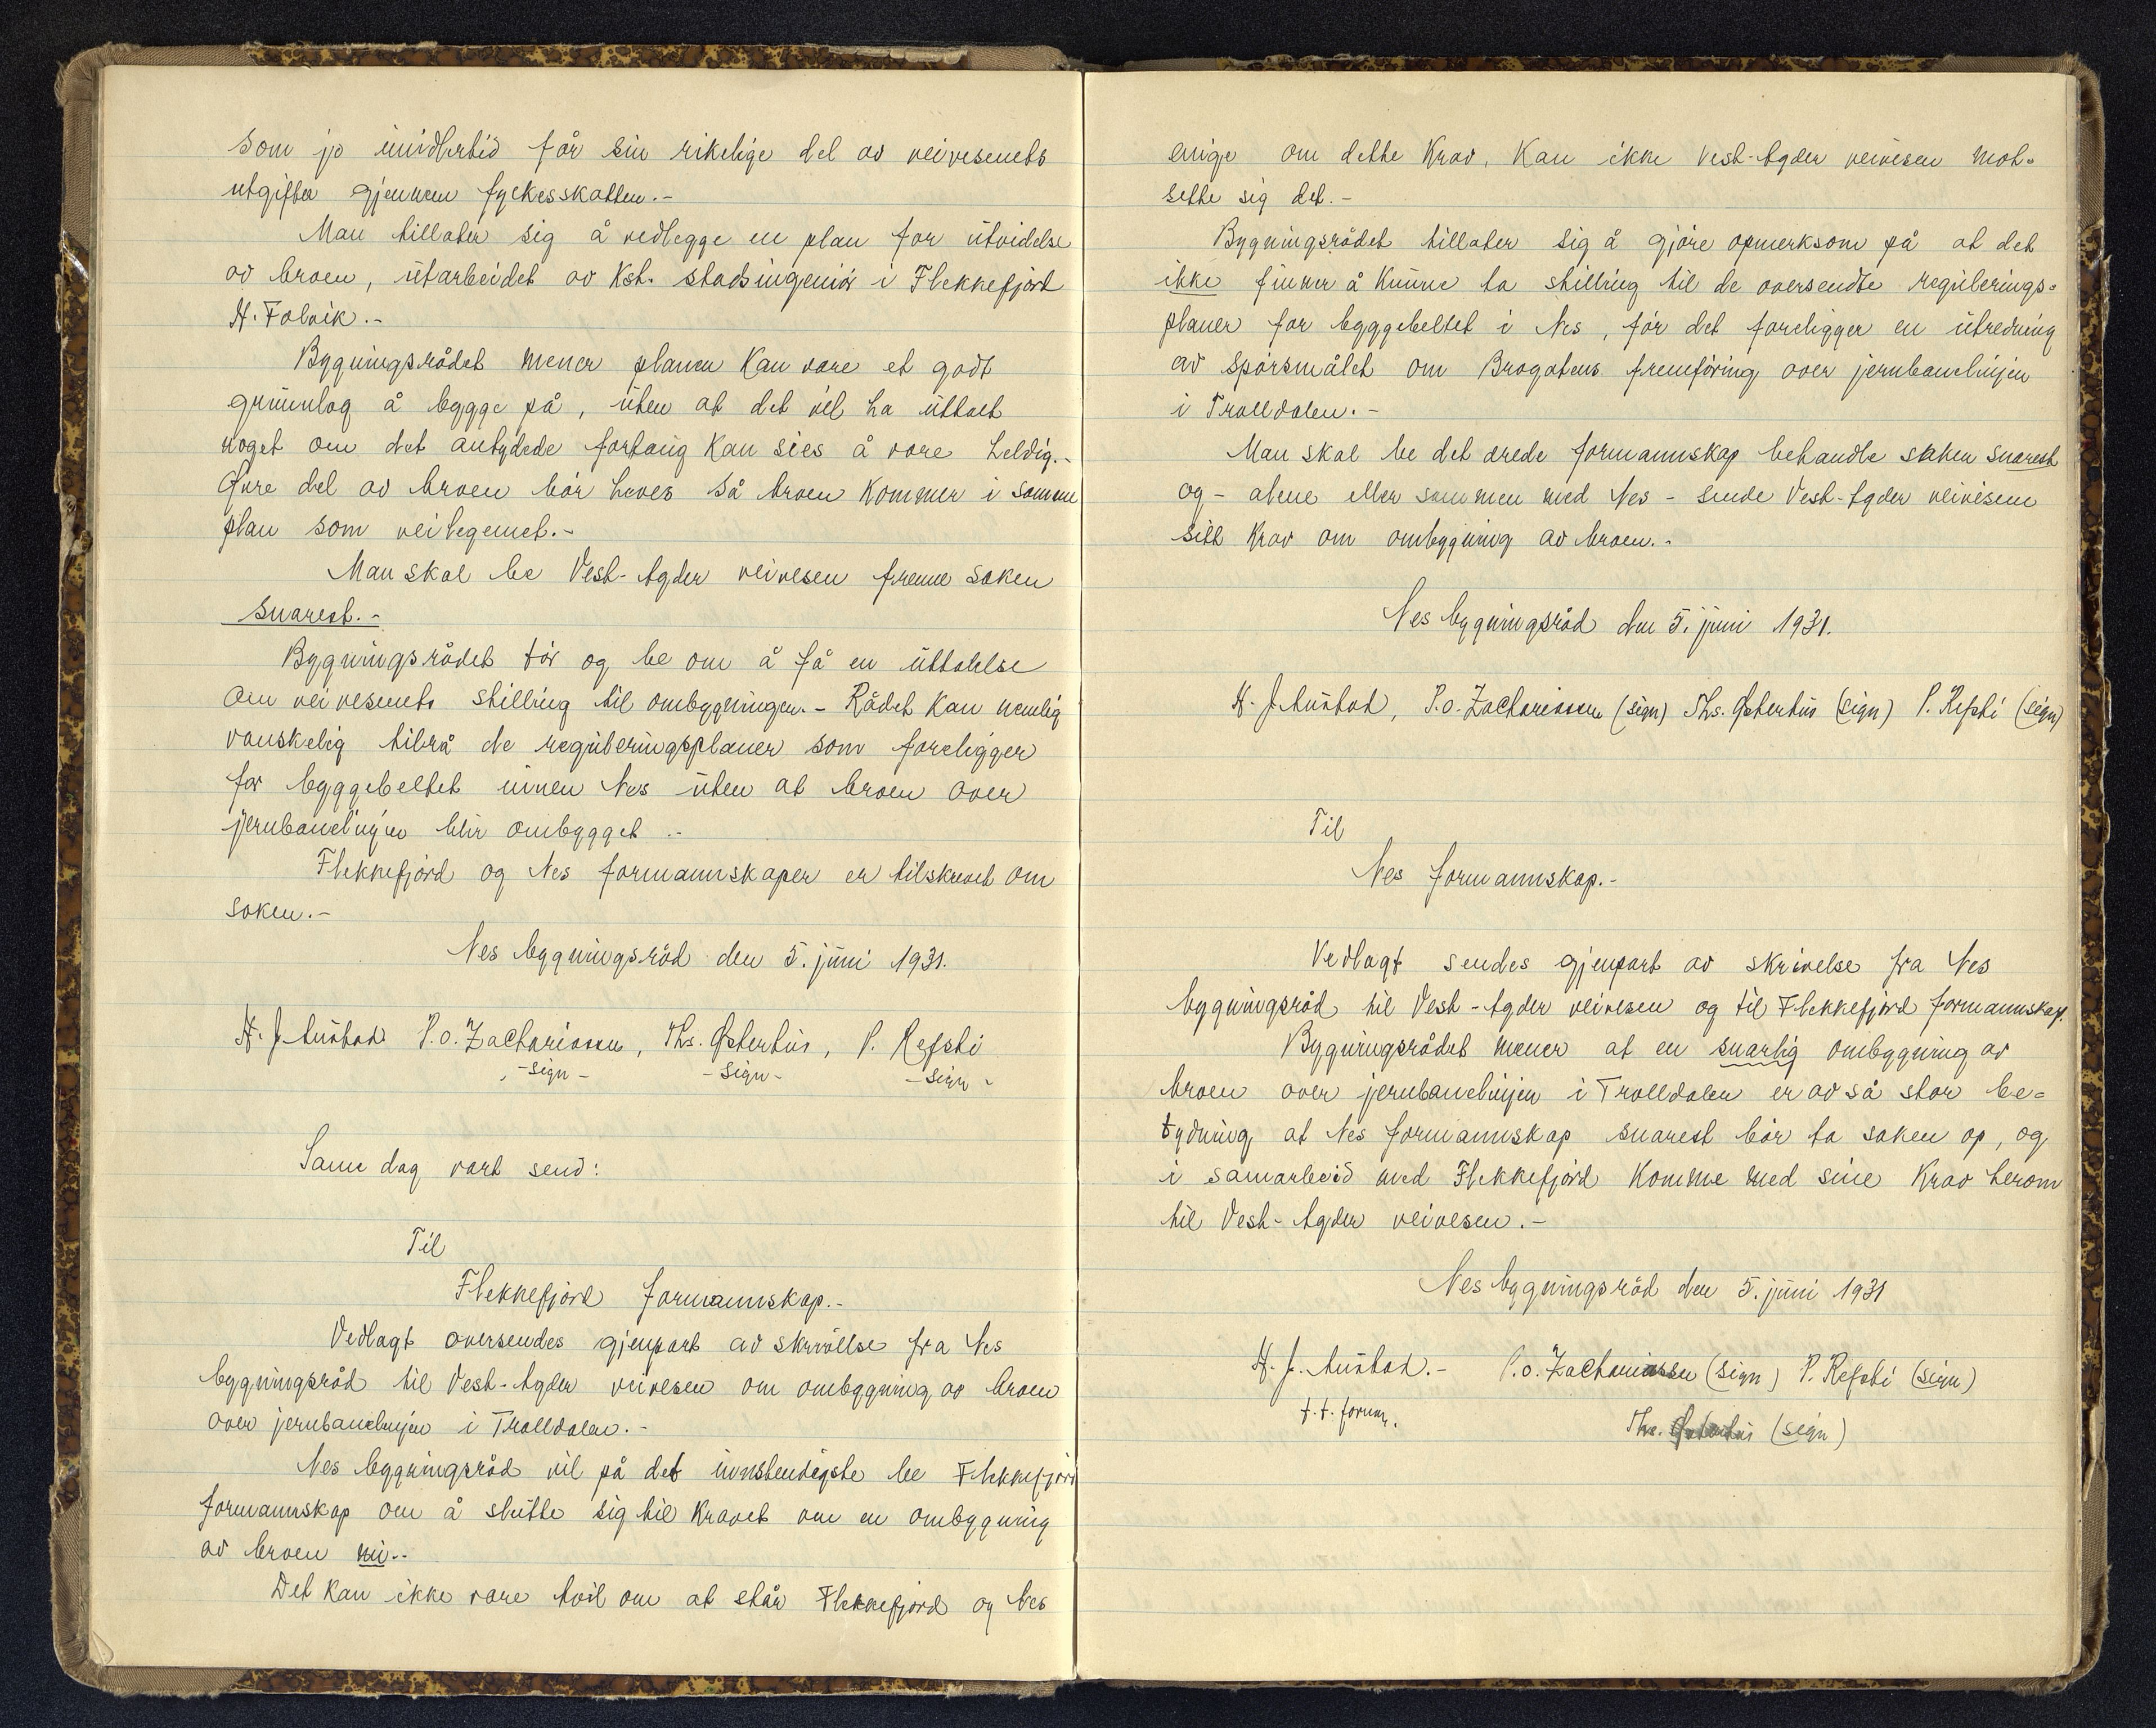 som jo imidlertid får sin rikelige del av veivesenets
utgifter gjennem fylkesskatten.-
Man tillater sig å vedlegge en plan for utvidelse
av broen, utarbeidet av Kst. stadsingeniør i Flekkefjord
H. Folvik.-
Bygningsrådet mener planen kan være et godt
grunnlag å bygge på, uten at det vil ha uttalt
noget om det antydede fortaug kan sies å være heldig.-
Øvre del av broen bør heves så broen kommer i samme
plan som veilegemet.-
Man skal be Vest-Agder veivesen fremme saken
snarest.-
Bygningsrådet tør og be om å få en uttalelse
om veivesenets stilling til ombygningen.- Rådet kan nemlig
vanskelig tilrå de reguleringsplaner som foreligger
for byggebeltet innen Nes uten at broen over
jernbanelinjen blir ombygget.-
Flekkefjord og Nes formannskaper er tilskrevet om
saken.-
Nes bygningsråd den 5. juni 1931.
H. J. Austad P.O. Zachariassen, Ths. Østerhus, P. Refsti
-sign- -sign- -sign-
Same dag vart send:
Til
Flekkefjord formannskap.-
Vedlagt oversendes gjenpart av skrivelse fra Nes
bygningsråd til Vest-Agder veivesen om ombygning av broen
over jernbanelinjen i Trolldalen.-
Nes bygningsråd vil på det innstendigste be Flekkefjord
formannskap om å slutte sig til kravet om en ombygning
av broen nu.-
Det kan ikke være tvil om at står Flekkefjord og Nes
enige om dette krav, kan ikke Vest-Agder veivesen mot-
sette sig det.-
Bygningsrådet tillater sig å gjøre opmerksom på at det
ikke finner å kunne ta stilling til de oversendte regulerings-
planer for byggebeltet i Nes, før det foreligger en utredning
av spørsmålet om Brogatens fremføring over jernbanelinjen
i Trolldalen.-
Man skal be det ærede formannskap behandle saken snarest
og - alene eller sammen med Nes - sende Vest-Agder veivesen
sitt krav om ombygning av broen.-
Nes bygningsråd den 5. juni 1931.
H. J. Austad, P.O. Zachariassen (sign) Ths. Østerhus (sign) P. Refsti (sign)
Til
Nes formannskap.-
Vedlagt sendes gjenpart av skrivelse fra Nes
bygningsråd til Vest-Agder veivesen og til Flekkefjord formannskap.
Bygningsrådet mener at en snarlig ombygning av
broen over jernbanelinjen i Trolldalen er av så stor be-
tydning at Nes formannskap snarest bør ta saken op, og
i samarbeid med Flekkefjord komme med sine krav herom
til Vest-Agder veivesen.-
Nes bygningsråd den 5. juni 1931
H. J. Austad.- P.O. Zachariassen (sign) P. Refsti (sign)
f.t. formz. Ths. Østerhus (sign)